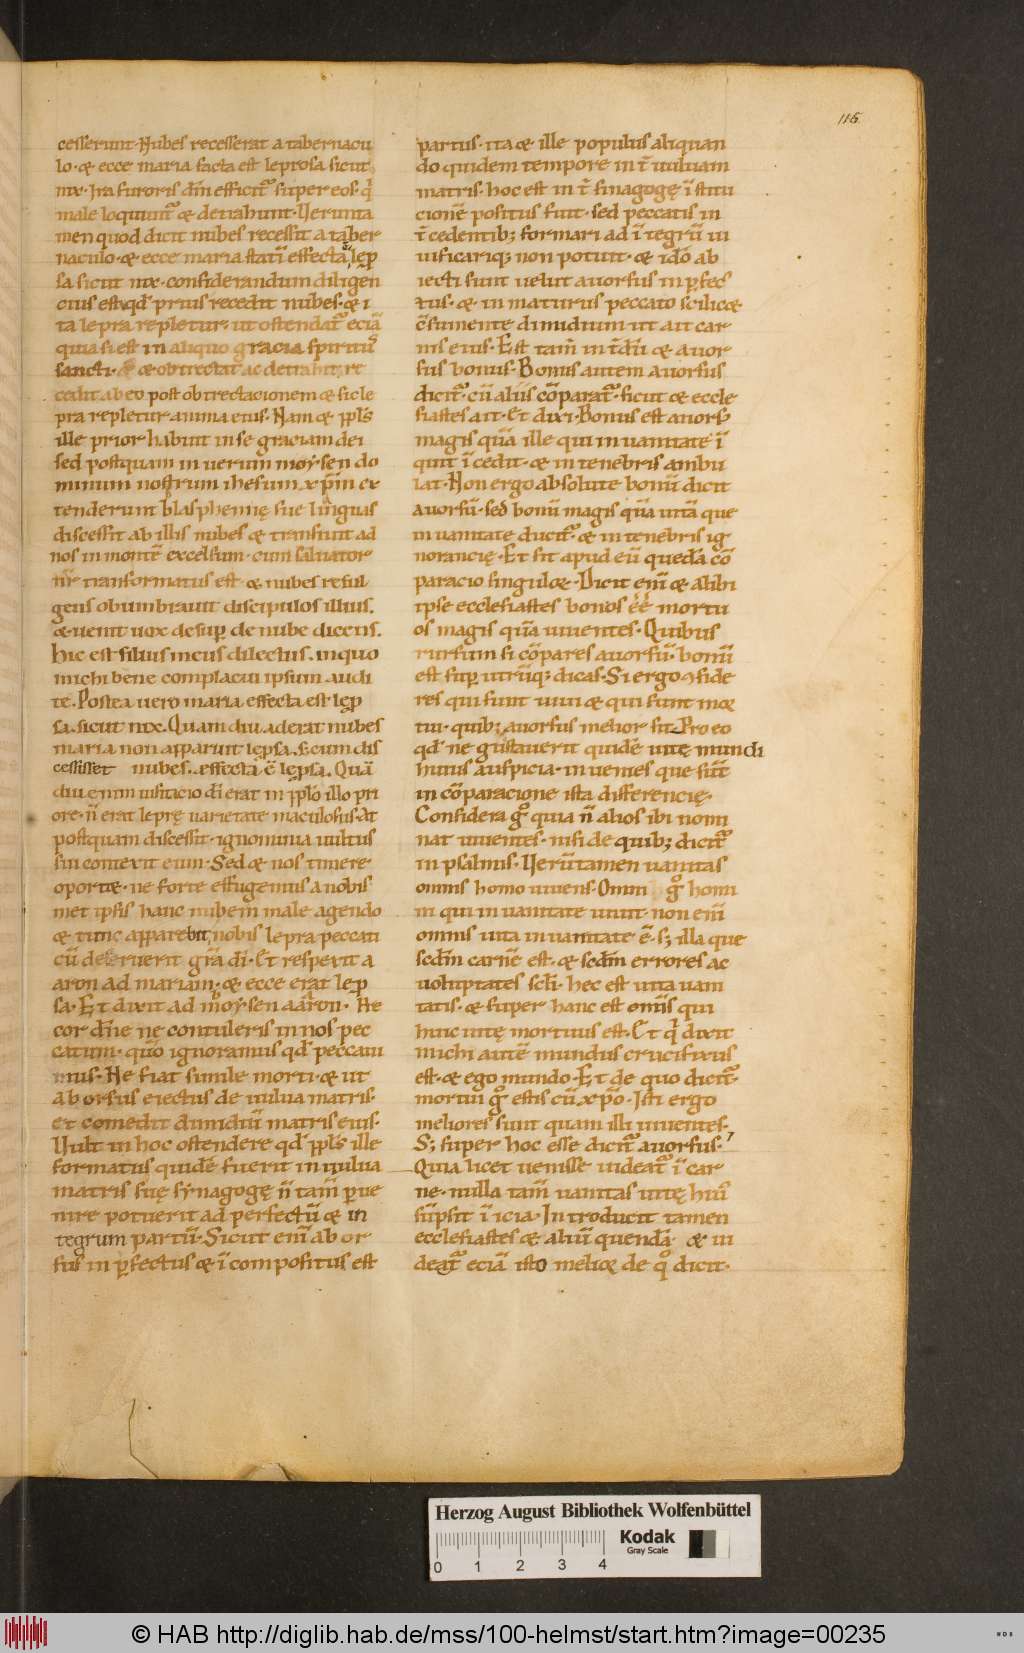 116
cesserunt. Nubes recesserat a tabernacu
lo. & ecce maria facta est leprosa sicut
nix. Ira furoris dñi efficit᷒ super eos. q̇
male loquunt᷒ & detrahunt. Verunta
men quod dicit nubes recessit a taber
naculo. & ecce maria statī effecta lep̄
sa sicut nix. considerandum diligen
cius est. qd̄ prius recedit nubes. & i
ta lepra repletur. ut ostendat᷒ eciā
quia si est in aliquo gracia spiritus
sancti. & obtrectat ac detrahit, re
cedit ab eo post obtrectacionem & sic le
pra repletur anima eius. Nam & pp̄ls
ille prior habuit in se graciam dei
sed postquam in uerum moysen do
minum nostrum ihesum xp̄m ex
tenderunt blasphemię sue linguas
discessit ab illis nubes & transiuit ad
nos in montē excelsum. cum saluator
nr̄ transformatus est. & nubes reful
gens obumbrauit discipulos illius.
& uenit uox desup̄ de nube dicens.
Hic est filius meus dilectus. in quo
michi bene complacui ipsum audi
te. Postea uero maria effecta est lep̄
sa. sicut nix. Quam diu aderat nubes
maria non apparuit lep̄sa. s; cum dis
cessisset nubes. effecta ē lep̄sa. Quā
diu enim uisitacio dī erat in pp̄lo illo pri
ore. n̄ erat leprę uarietate maculosus. At
postquam discessit. ignominia uultus
sui contexit eum. Sed & nos timere
oport&. ne forte effugemus a nobis
met ipsis hanc nubem male agendo
& tunc apparebit nobis lepra peccati
cū deseruerit grā dī. Et respexit a
aron ad mariam. & ecce erat lep̄
sa. Et dixit ad moysen aaron. Ne
cor dñe ne contuleris in nos pec
catum. quō ignoramus qd̄ peccaui
mus. Ne fiat simile morti. & ut
aborsus eiectus de uulua matris.
et comedit dimidiū matris eius.
Vult in hoc ostendere qd̄ pp̄ls ille
formatus quidē fuerit in uulua
matris suę synagogę n̄ tam̄ p̄ue
nire potuerit ad perfectū & in
tegrum partū. Sicut enī abor
sus inp̄fectus & īcompositus est
partus. ita & ille populus aliquan
do quidem tempore int̄ uuluam
matris. hoc est int̄ sinagogę īstitu
cionē positus fuit. sed peccatis in
t̄cedentib; formari ad ītegrū ui
uificariq; non potuit. & idō ab
iecti sunt uelut auorsus inp̄fec
tus. & inmaturus peccato scilic&
c̄sumente dimidium ut ait car
nis eius. Est tam̄ int̄dū & auor
sus bonus. Bonus autem auorsus
dicit᷒. cū aliis cōparat᷒. sicut & eccle
siastes ait. Et dixi. Bonus est auorsus
magis quā ille qui in uanitate ī
quit īcedit. & in tenebris ambu
lat. Non ergo absolute bonū dicit
auorsū. sed bonū magis quā uitā que
in uanitate ducit᷒. & in tenebris ig
norancię. Et sit apud eū quedā cō
paracio singulor. Dicit enī & alibi
ipse ecclesiastes bonos ēē mortu
os magis quā uiuentes. Quibus
rursum si cōpares auorsū. bonū
est sup̄ utrūq; dicas. Si ergo ꝯside
res qui sunt uiui & qui sunt mor
tui. quib; auorsus melior sit. Pro eo
qd̄ ne gustauerit quidē uitę mundi
huius auspicia. inuenies que sūt
in cōparacione ista differencię.
Considera g° quia n̄ alios ibi nomi
nat uiuentes. nisi de quib; dicit᷒
in psalmis. Verūtamen uanitas
omnis homo uiuens. Omni g° homi
ni qui in uanitate uiuit. non enī
omnis uita in uanitate ē. s; illa que
scdm̄ carnē est. & scdm̄ errores ac
uoluptates scl̄i. hec est uita uani
tatis. & super hanc est omīs qui
huic uitę mortuus est. Et q̇ dixit
michi autē mundus crucifixus
est. & ego mundo. Et de quo dicit᷒.
mortui g° estis cū xp̄o. Isti ergo
meliores sunt quam illi uiuentes.
S; super hoc esse dicit᷒ auorsus.
Quia licet uenisse uideat᷒ ī car
ne. nulla tam̄ uanitas uitę hui᷒
sūpsit īicia. Introducit tamen
ecclesiastes & aliū quendā. & ui
deat᷒ eciā isto melior de q° dicit.
Herzog August Bibliothek Wolfenbüttel
0 1 2 3 4
Kodak
Gray Scale
© HAB http://diglib.hab.de/mss/100-helmst/start.htm?image=00235